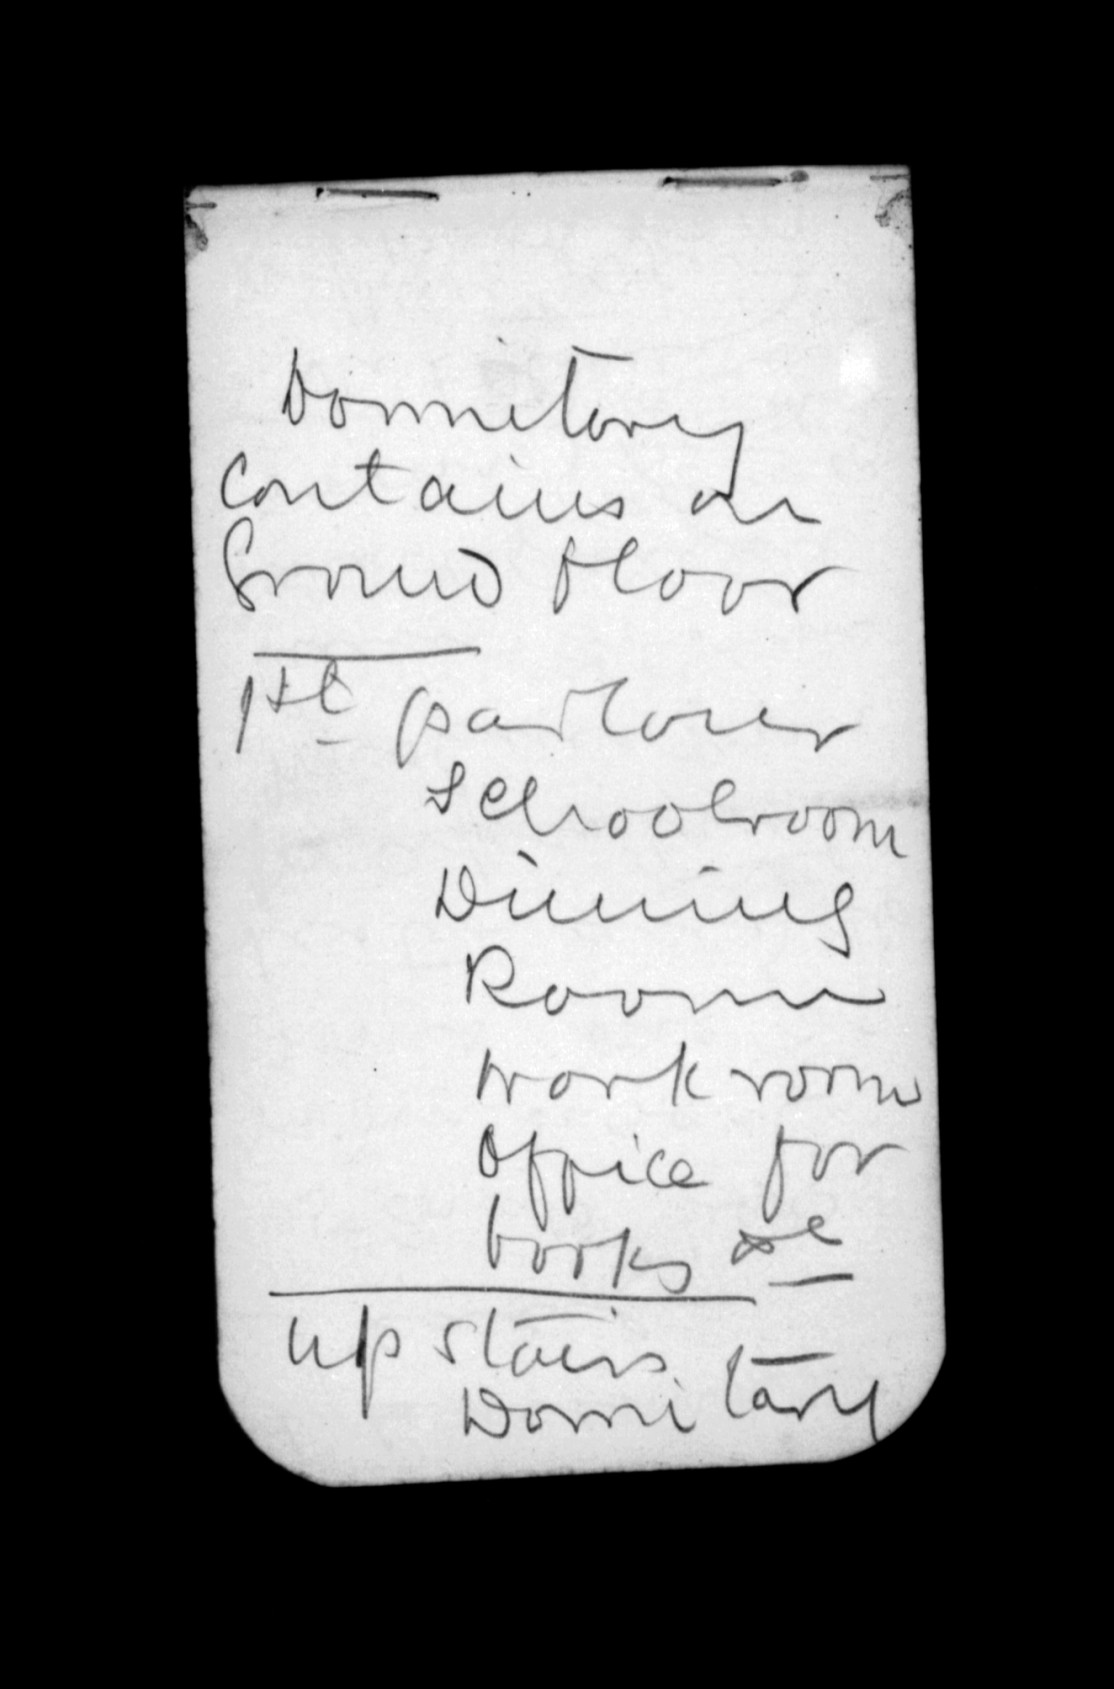 Dormitory
contains on
Ground floor
1st parlour
Schoolroom
Dining
Room
work room
office for
books &c
up stairs
Dormitory